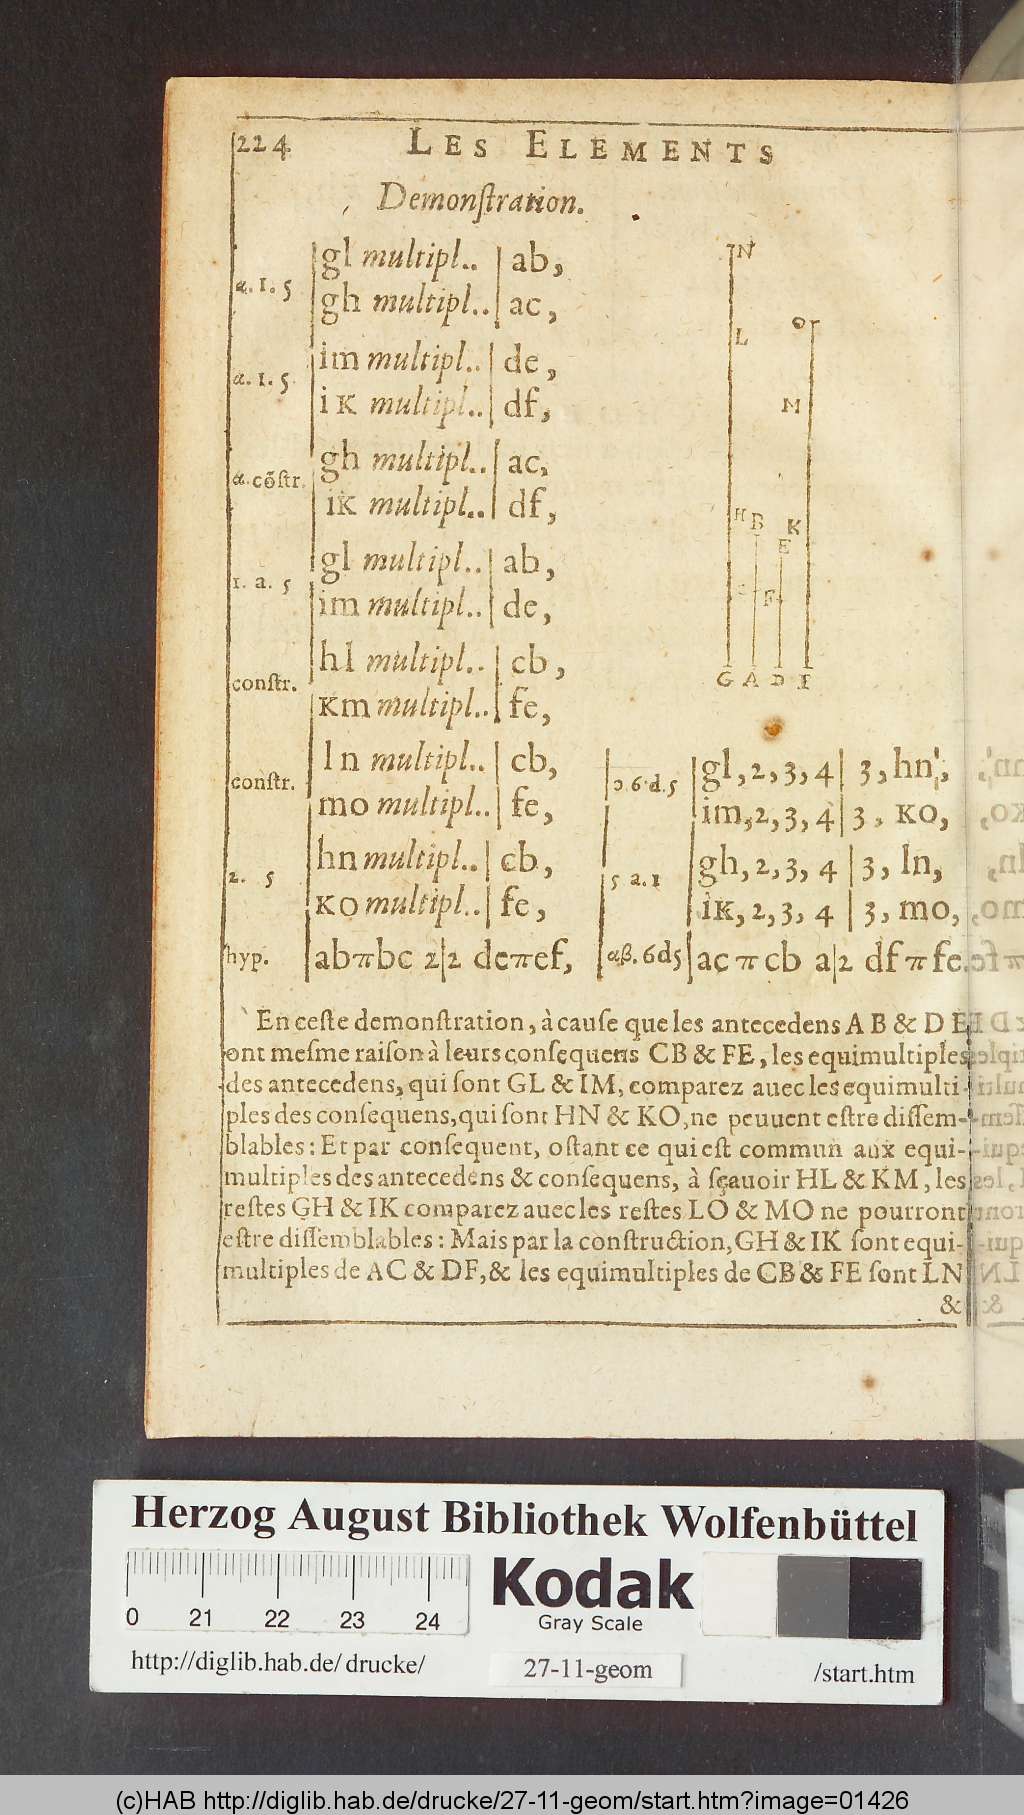 224 LES ELEMENTS
Demonſtration.
a. 1. 5 | gl multipl.. | ab,
gh multipl.. | ac,
a. 1. 5 | im multipl.. | de,
iK multipl.. | df,
a. cõſtr. | gh multipl.. | ac,
iK multipl.. | df,
1. a. 5 | gl multipl.. | ab,
im multipl.. | de,
conſtr. | hl multipl.. | cb,
Km multipl.. | fe,
conſtr. | ln multipl.. | cb,
mo multipl.. | fe,
2. 5 | hn multipl.. | cb,
KO multipl.. | fe,
hyp. | abπbc 2|2 deπef,
N
L
O
M
H B K
E
F
G A D I
6.d.5 | gl, 2, 3, 4 | 3, hn,
im, 2, 3, 4 | 3, KO,
5 a.1 | gh, 2, 3, 4 | 3, ln,
iK, 2, 3, 4 | 3, mo,
aβ. 6d5 | acπcb a|2 dfπfe.
En ceſte demonſtration, à cauſe que les antecedens AB & DE
ont meſme raiſon à leurs conſequens CB & FE, les equimultiples
des antecedens, qui ſont GL & IM, comparez auec les equimulti-
ples des conſequens, qui ſont HN & KO, ne peuuent eſtre diſſem-
blables: Et par conſequent, oſtant ce qui eſt commun aux equi-
multiples des antecedens & conſequens, à ſçauoir HL & KM, les
reſtes GH & IK comparez auec les reſtes LO & MO ne pourront
eſtre diſſemblables: Mais par la conſtruction, GH & IK ſont equi-
multiples de AC & DF, & les equimultiples de CB & FE ſont LN
&
Herzog August Bibliothek Wolfenbüttel
0 21 22 23 24
Kodak
Gray Scale
http://diglib.hab.de/drucke/ 27-11-geom /start.htm
(c)HAB http://diglib.hab.de/drucke/27-11-geom/start.htm?image=01426